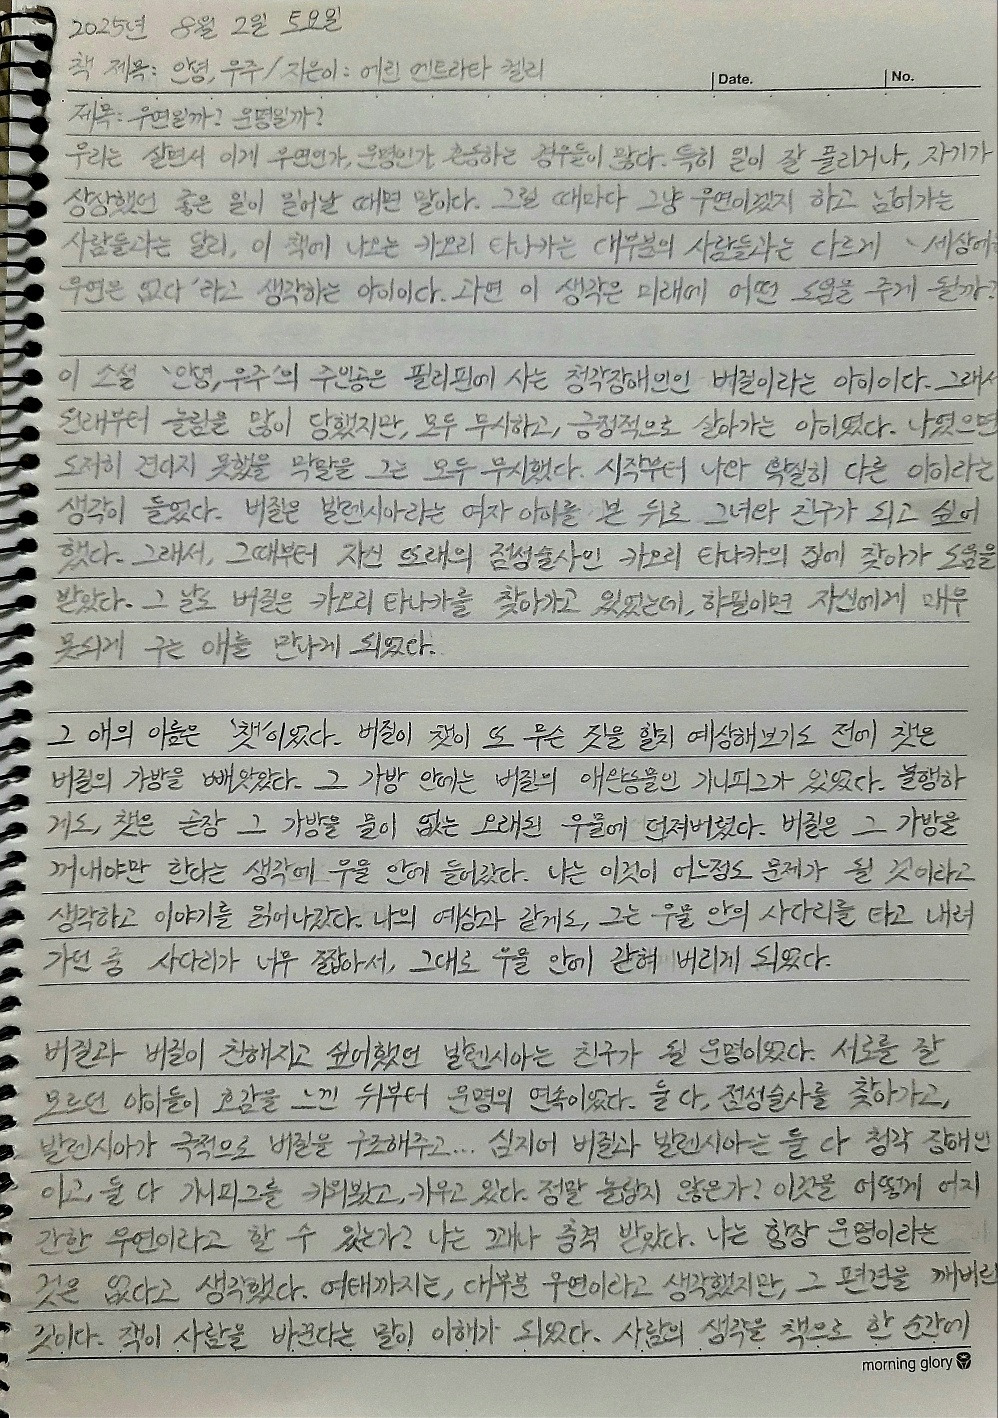 2025년 8월 2일 토요일
책 제목: 안녕, 우주 / 지은이: 에린 엔트라다 켈리
Date. No.
제목: 우연일까? 운명일까?
우리는 살면서 이게 우연인가, 운명인가 혼동하는 경우들이 많다. 특히 일이 잘 풀리거나, 자기가
상상했던 좋은 일이 일어날 때면 말이다. 그럴 때마다 그냥 우연이겠지 하고 넘어가는
사람들과는 달리, 이 책에 나오는 카오리 타나카는 대부분의 사람들과는 다르게 '세상에
우연은 없다'라고 생각하는 아이이다. 과연 이 생각은 미래에 어떤 도움을 주게 될까?
이 소설 '안녕, 우주'의 주인공은 필리핀에 사는 청각장애인인 버질이라는 아이이다. 그래서
원래부터 놀림을 많이 당했지만, 모두 무시하고, 긍정적으로 살아가는 아이였다. 나였으면
도저히 견디지 못했을 막말을 그는 모두 무시했다. 시작부터 나와 확실히 다른 아이라는
생각이 들었다. 버질은 발렌시아라는 여자 아이를 본 뒤로 그녀와 친구가 되고 싶어
했다. 그래서, 그때부터 자신 또래의 점성술사인 카오리 타나카의 집에 찾아가 도움을
받았다. 그 날도 버질은 카오리 타나카를 찾아가고 있었는데, 하필이면 자신에게 매우
못되게 구는 애를 만나게 되었다.
그 애의 이름은 '챗'이었다. 버질이 챗이 또 무슨 짓을 할지 예상해보기도 전에 챗은
버질의 가방을 빼앗았다. 그 가방 안에는 버질의 애완동물인 기니피그가 있었다. 불행하
게도, 챗은 곧장 그 가방을 물이 없는 오래된 우물에 던져버렸다. 버질은 그 가방을
꺼내야만 한다는 생각에 우물 안에 들어갔다. 나는 이것이 어느정도 문제가 될 것이라고
생각하고 이야기를 읽어나갔다. 나의 예상과 같게도, 그는 우물 안의 사다리를 타고 내려
가던 중 사다리가 너무 짧아서, 그대로 우물 안에 갇혀 버리게 되었다.
버질과 버질이 친해지고 싶어했던 발렌시아는 친구가 될 운명이었다. 서로를 잘
모르던 아이들이 호감을 느낀 뒤부터 운명의 연속이었다. 둘 다, 점성술사를 찾아가고,
발렌시아가 극적으로 버질을 구조해주고... 심지어 버질과 발렌시아는 둘 다 청각 장애인
이고, 둘 다 기니피그를 키워봤고, 키우고 있다. 정말 놀랍지 않은가? 이것을 어떻게 어지
간한 우연이라고 할 수 있는가? 나는 꽤나 충격 받았다. 나는 항상 운명이라는
것은 없다고 생각했다. 여태까지는, 대부분 우연이라고 생각했지만, 그 편견을 깨버린
것이다. 책이 사람을 바꾼다는 말이 이해가 되었다. 사람의 생각을 책으로 한 순간에
morning glory